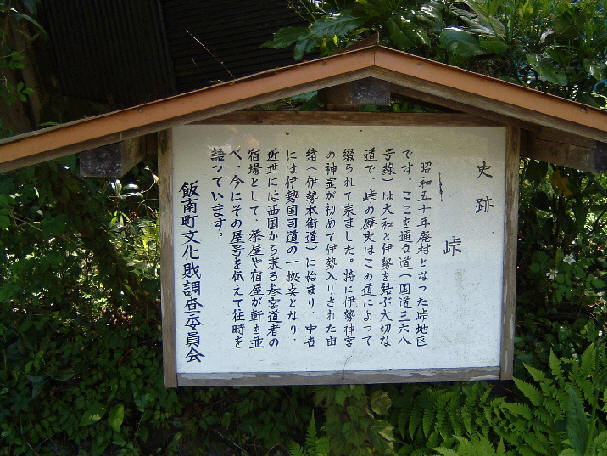 史跡 峠
昭和五十年廃村となった峠地区
です。ここを通る道(国道三六八
号線)は大和と伊勢を結ぶ大切な
道で、峠の歴史はこの道によって
綴られて来ました。特に伊勢神宮
の神霊が初めて伊勢入りされた由
緒(伊勢本街道)に始まり、中世
には伊勢国司道の一拠点となり、
近世には西国から来る参宮道者の
宿場として、茶屋や宿屋が軒を並
べ、今にその屋号を伝えて往時を
語っています。
飯南町文化財調査委員会